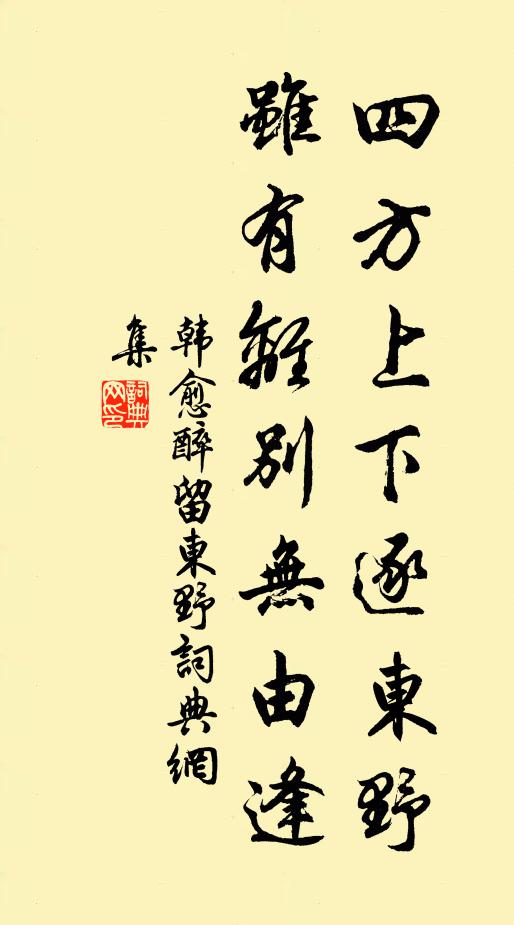 四方上下逐東野
雖有離別無由逢
韩愈醉留東野詞典網
集
詞典
网印